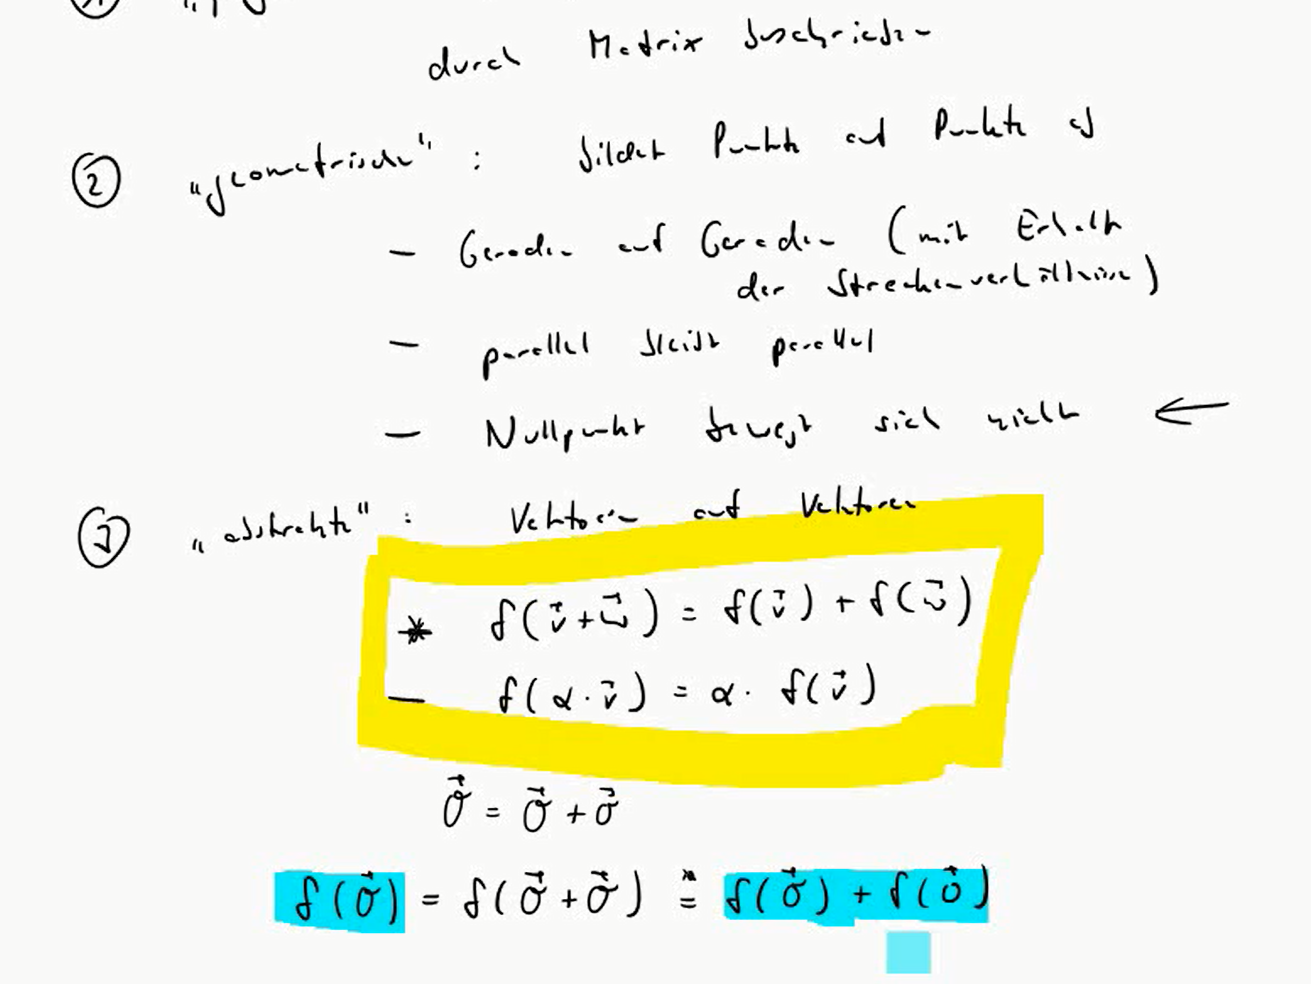 durch Matrix beschrieben
② "geometrisch" : bildet Punkte auf Punkte ab
— Geraden auf Geraden (mit Erhalt
der Streckenverhältnisse)
— parallel bleibt parallel
— Nullpunkt bewegt sich nicht ←
③ "abstrakt" : Vektoren auf Vektoren
* f(v⃗+w⃗) = f(v⃗) + f(w⃗)
— f(α·v⃗) = α· f(v⃗)
0⃗ = 0⃗ + 0⃗
f(0⃗) = f(0⃗+0⃗) =* f(0⃗) + f(0⃗)